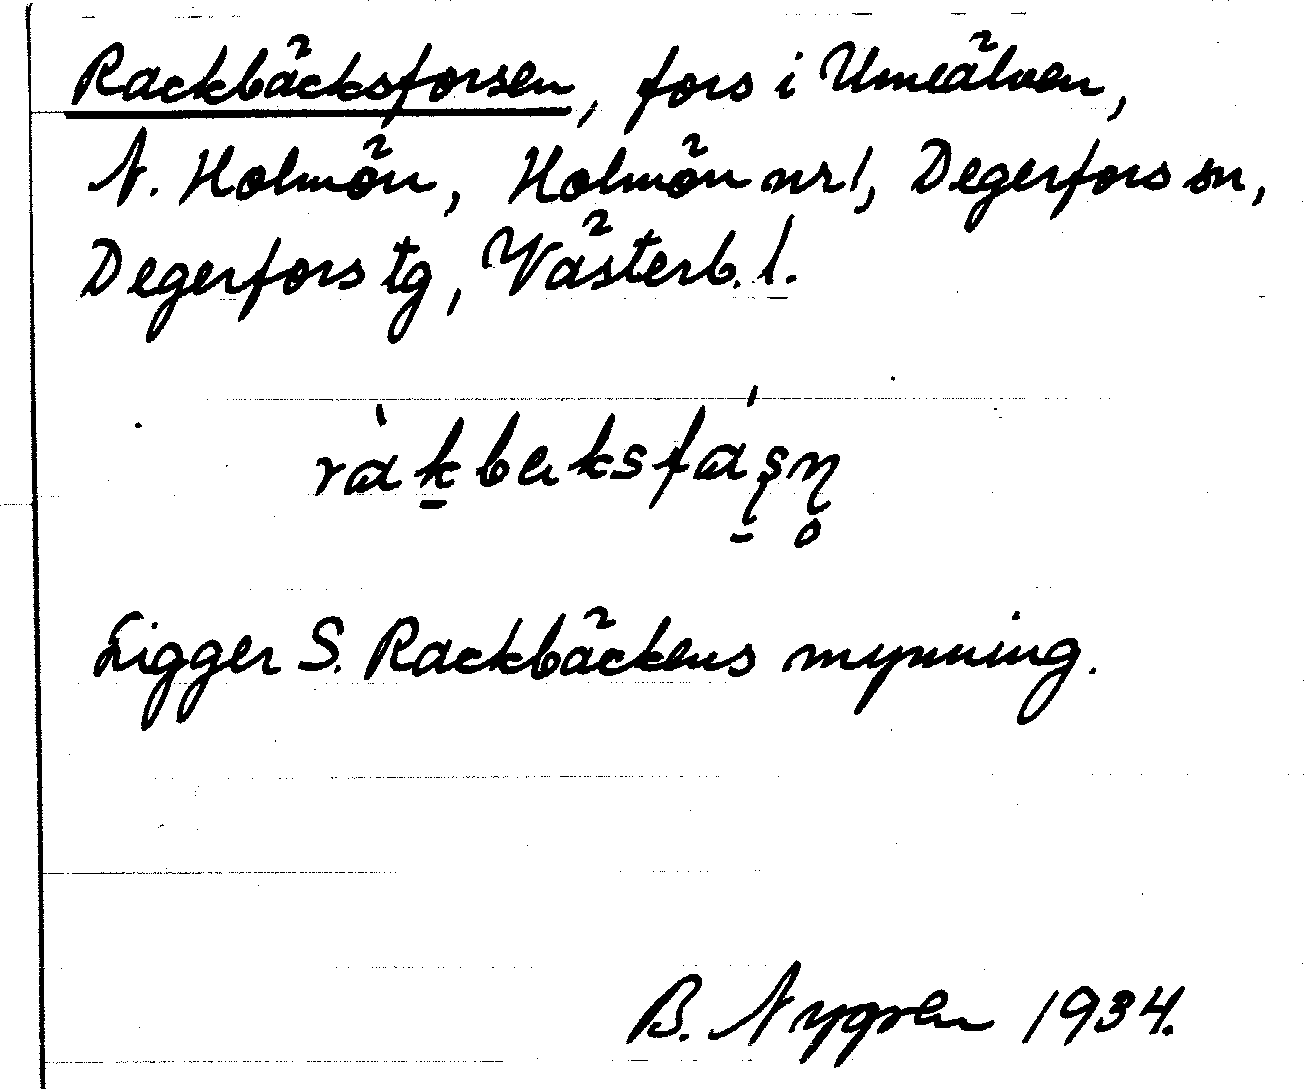 Rackbäcksforsen, fors i Umeälven,
N. Holmön, Holmön nr 1, Degerfors sn,
Degerfors tg, Västerb. l.
ràk̠bɐksfáʂ̠ɳ̥
Ligger S. Rackbäckens mynning.
B. Nygren 1934.